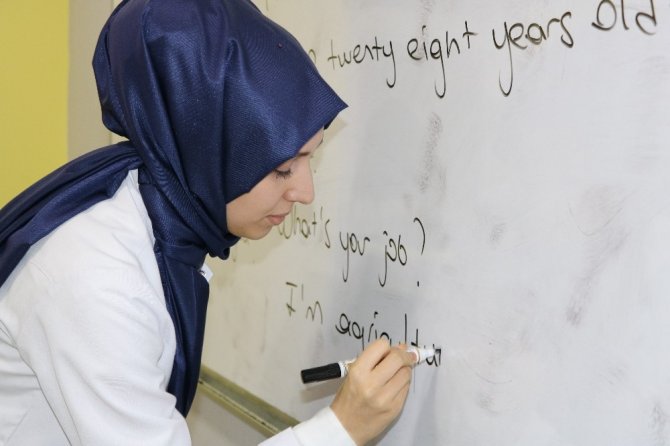 twenty eight years old
What's you job?
I'm agricultu